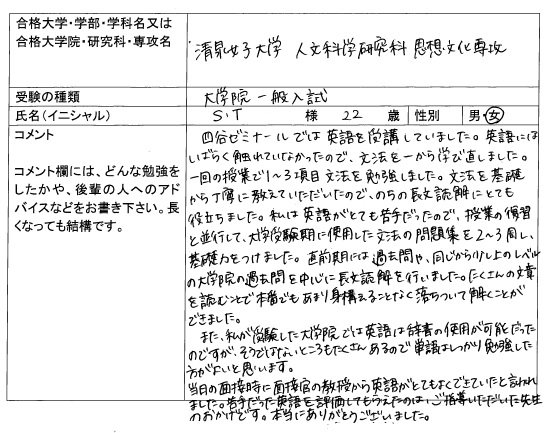 合格大学・学部・学科名又は
合格大学院・研究科・専攻名
清泉女子大学 人文科学研究科 思想文化専攻
受験の種類
大学院一般入試
氏名(イニシャル)
S・T 様 22 歳 性別 男・女
コメント
コメント欄には、どんな勉強を
したかや、後輩の人へのアド
バイスなどをお書き下さい。長
くなっても結構です。
四谷ゼミナールでは英語を受講していました。英語には
しばらく触れていなかったので、文法を一から学び直しました。
一回の授業で1〜3項目文法を勉強しました。文法を基礎
から丁寧に教えていただいたので、のちの長文読解にとても
役立ちました。私は英語がとても苦手だったので、授業の復習
と並行して、大学受験期に使用した文法の問題集を2〜3周し、
基礎力をつけました。直前期には過去問や、同じから少し上のレベル
の大学院の過去問を中心に長文読解を行いました。たくさんの文章
を読むことで本番でもあまり身構えることなく落ちついて解くことが
できました。
また、私が受験した大学院では英語は辞書の使用が可能だった
のですが、そうではないところもたくさんあるので単語はしっかり勉強した
方がよいと思います。
当日の面接時に面接官の教授から英語がとてもよくできていたと言われ
ました。苦手だった英語を評価してもらえたのは、ご指導いただいた先生
のおかげです。本当にありがとうございました。